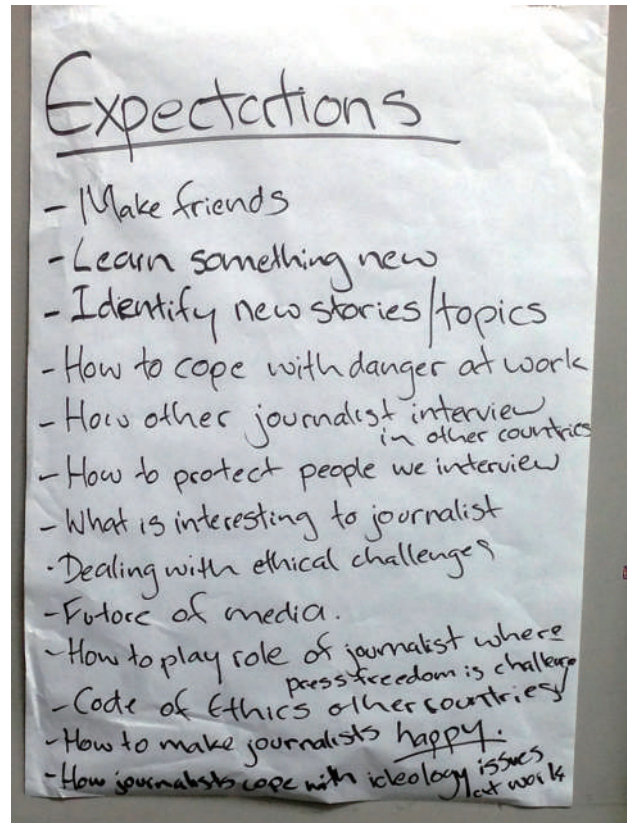 Expectations
- Make friends
- Learn something new
- Identify new stories/topics
- How to cope with danger at work
- How other journalist interview
in other countries
- How to protect people we interview
- What is interesting to journalist
- Dealing with ethical challenges
- Future of media.
- How to play role of journalist where
press freedom is challenge
- Code of Ethics other countries
- How to make journalists happy.
- How journalists cope with ideology issues
at work